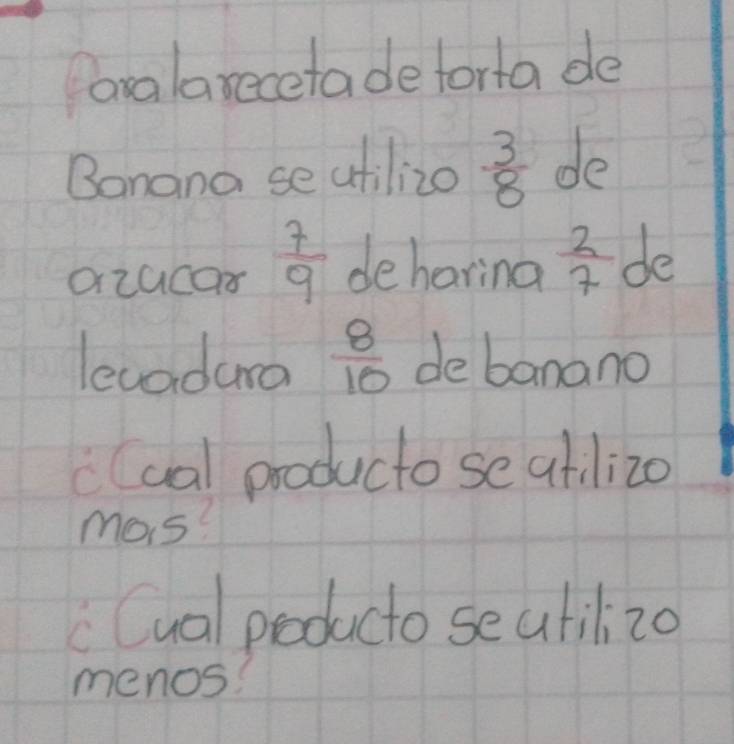 Para la receta de torta de
Banana se utilizo 3/8 de
azucar 7/9 de harina 2/7 de
levadura 8/10 de banano
¿Cual producto se utilizo
mas?
¿Cual producto se utilizo
menos?